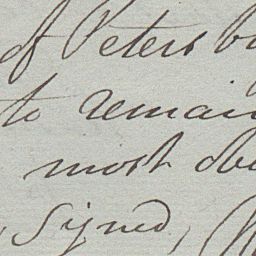 of Peters
to remain
most obe
Signed,